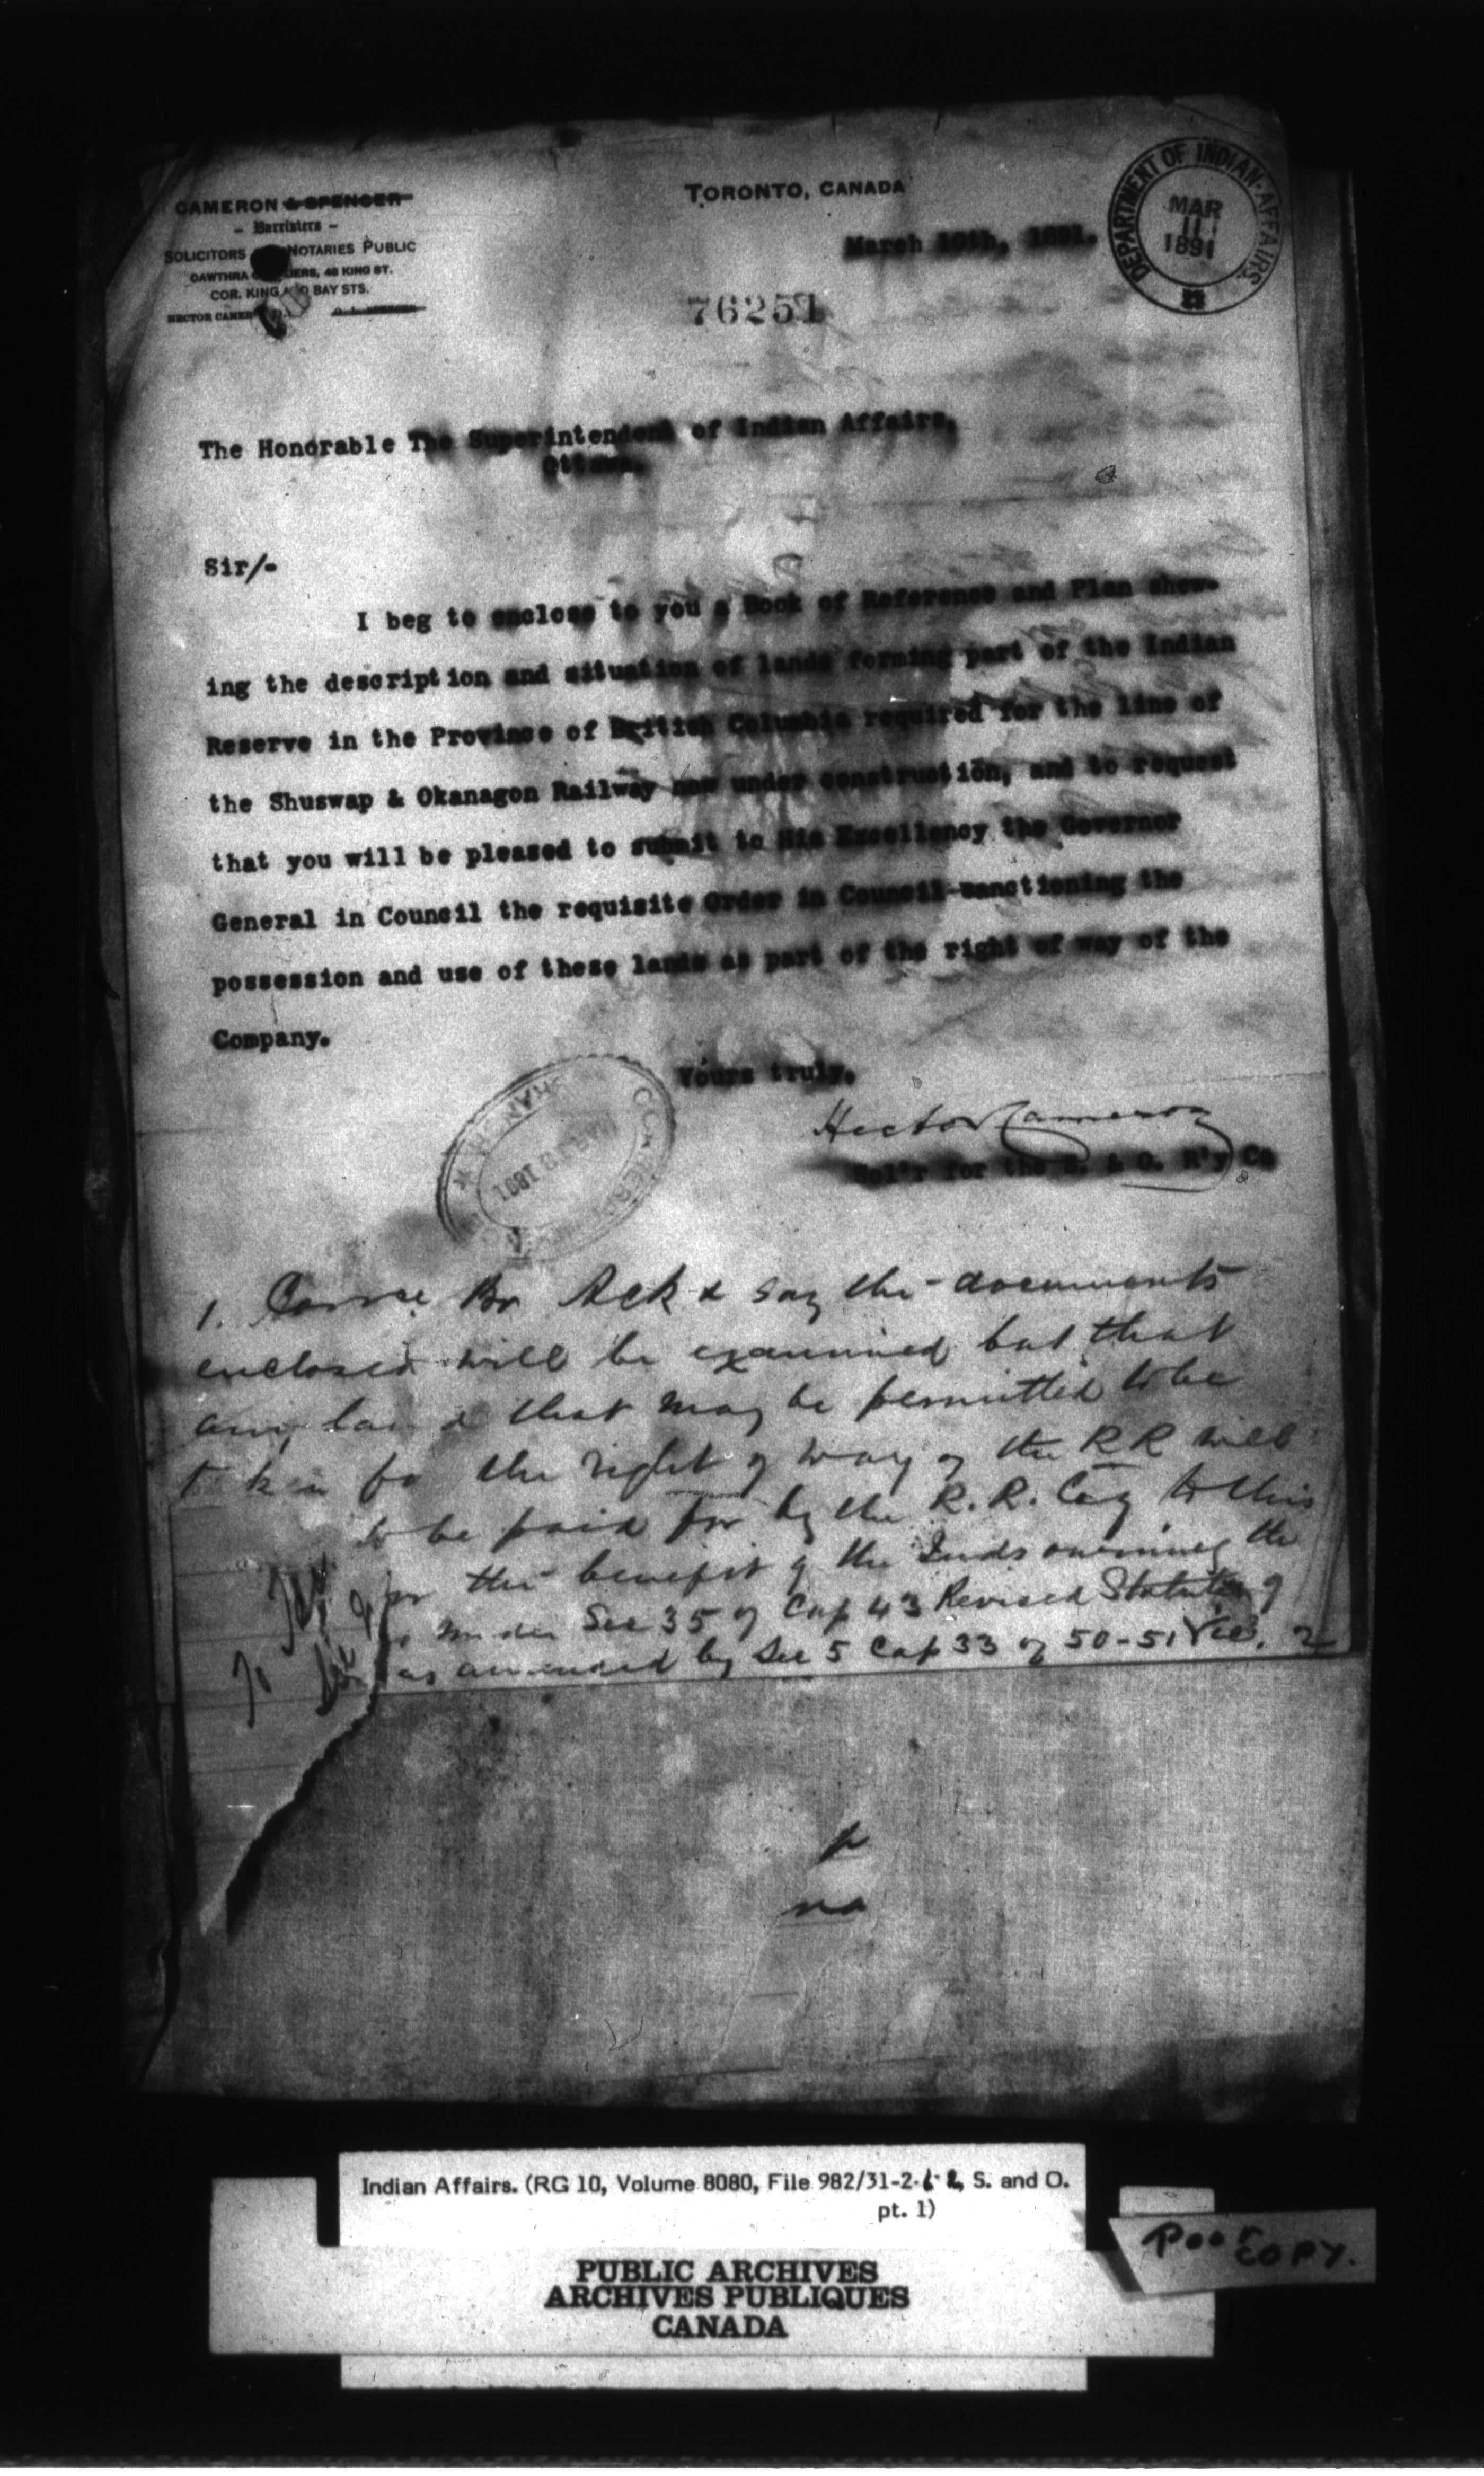 CAMERON & SPENCER
- Barristers -
SOLICITORS NOTARIES PUBLIC
CAWTHRA 48 KING ST.
COR. KING AND BAY STS.
HECTOR
TORONTO, CANADA
March 10th, 1891.
DEPARTMENT OF INDIAN AFFAIRS.
MAR
11
1891
76251
The Honorable The Superintendent of Indian Affairs,
Ottawa.
Sir/-
I beg to enclose to you a Book of Reference and Plan show-
ing the description and situation of lands forming part of the Indian
Reserve in the Province of British Columbia required for the line of
the Shuswap & Okanagon Railway now under construction, and to request
that you will be pleased to submit to His Excellency the Governor
General in Council the requisite Order in Council sanctioning the
possession and use of these lands as part of the right of way of the
Company.
Yours truly,
Hector Cameron
Sol'r for the S. & O. R'y Co
1891
1. Corrce Br Ack & say the documents
enclosed will be examined but that
any land that may be permitted to be
for the right of way of the RR will
to be paid for by the R. R. Coy to this
for the benefit of the Inds owning the
under Sec 35 of Cap 43 Revised Statutes of
as amended by Sec 5 Cap 33 of 50-51 Vic.
Indian Affairs. (RG 10, Volume 8080, File 982/31-2- S. and O.
pt. 1)
Poor
COPY.
PUBLIC ARCHIVES
ARCHIVES PUBLIQUES
CANADA